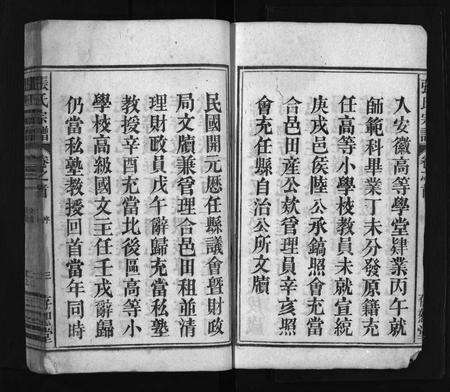 入安徽高等學堂肄業丙午就
師範科畢業丁未分發原籍充
任高等小學校教員未就宣統
庚戌邑侯陸公承鎬照會充當
合邑田產公欵管理員辛亥照
會充任縣自治公所文牘
民國開元懋任縣議會暨財政
局文牘兼管理合邑田租並清
理財政員戊午辭歸充當私塾
教授辛酉充當北後區高等小
學校高級國文主任壬戌辭歸
仍當私塾教授回首當年同時
張氏宗譜
卷之首
三